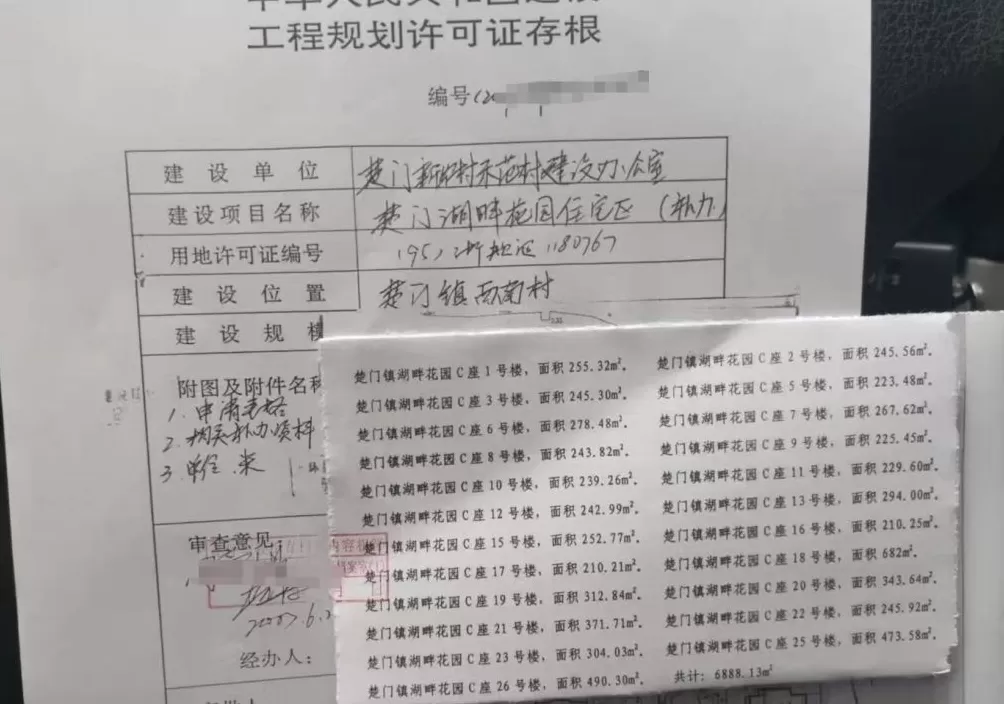 工程规划许可证存根
编号(20
建设单位 楚门新农村示范村建设办公室
建设项目名称 楚门湖畔花园住宅区(补办)
用地许可证编号
建设位置 楚门镇西南村
建设规模
附图及附件名称
1. 申请表格
2. 相关补办资料
3.
审查意见:
2007.6.2
经办人:
楚门镇湖畔花园C座1号楼，面积255.32㎡。 楚门镇湖畔花园C座2号楼，面积245.56㎡。
楚门镇湖畔花园C座3号楼，面积245.30㎡。 楚门镇湖畔花园C座5号楼，面积223.48㎡。
楚门镇湖畔花园C座6号楼，面积278.48㎡。 楚门镇湖畔花园C座7号楼，面积267.62㎡。
楚门镇湖畔花园C座8号楼，面积243.82㎡。 楚门镇湖畔花园C座9号楼，面积225.45㎡。
楚门镇湖畔花园C座10号楼，面积239.26㎡。 楚门镇湖畔花园C座11号楼，面积229.60㎡。
楚门镇湖畔花园C座12号楼，面积242.99㎡。 楚门镇湖畔花园C座13号楼，面积294.00㎡。
楚门镇湖畔花园C座15号楼，面积252.77㎡。 楚门镇湖畔花园C座16号楼，面积210.25㎡。
楚门镇湖畔花园C座17号楼，面积210.21㎡。 楚门镇湖畔花园C座18号楼，面积682㎡。
楚门镇湖畔花园C座19号楼，面积312.84㎡。 楚门镇湖畔花园C座20号楼，面积343.64㎡。
楚门镇湖畔花园C座21号楼，面积371.71㎡。 楚门镇湖畔花园C座22号楼，面积245.92㎡。
楚门镇湖畔花园C座23号楼，面积304.03㎡。 楚门镇湖畔花园C座25号楼，面积473.58㎡。
楚门镇湖畔花园C座26号楼，面积490.30㎡。 共计：6888.13㎡